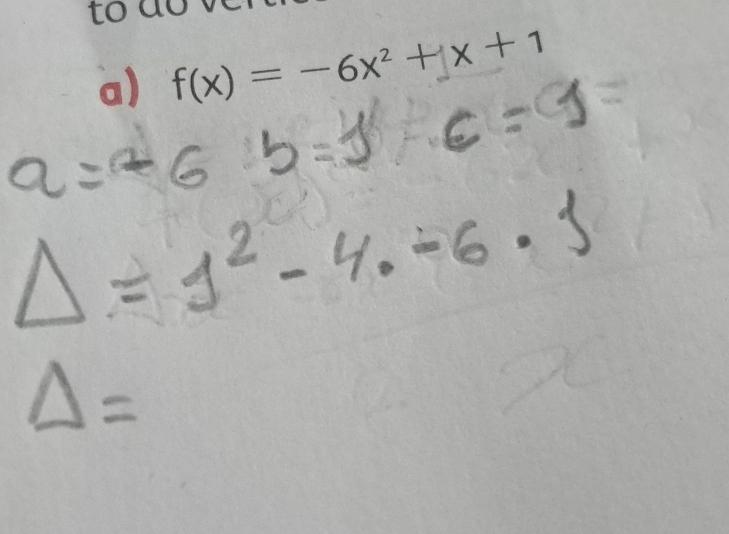 to do
a) f(x) = −6x² + x + 1
a = -6 b = 1 c = 1
Δ = 1² - 4 . -6 . 1
Δ =